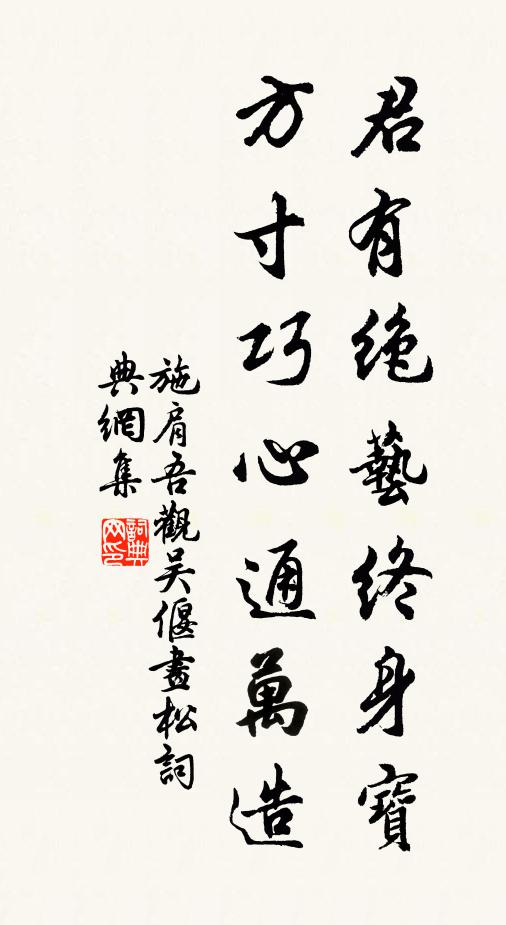 君有絶藝終身寶
方寸巧心通萬造
施肩吾觀吴偃畫松詞
典網集
詞典
网印